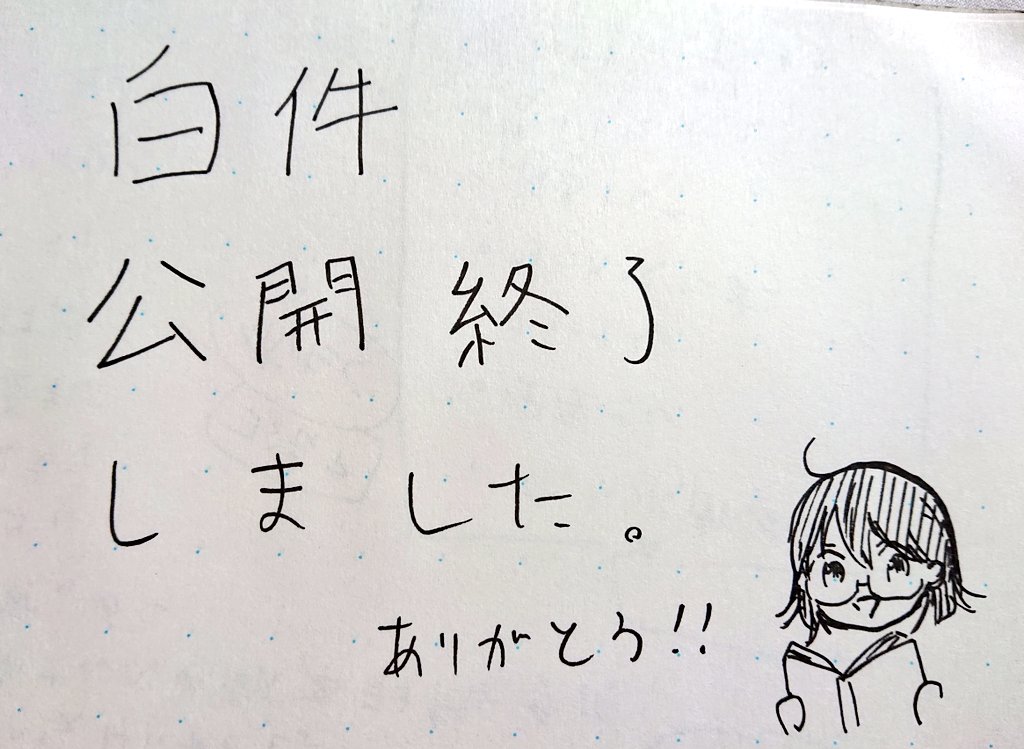 白件
公開終了
しました。
ありがとう!!